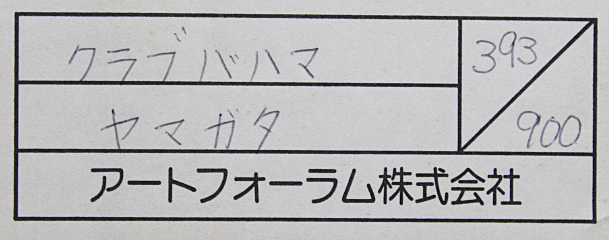 クラブバハマ
393
ヤマガタ
900
アートフォーラム株式会社